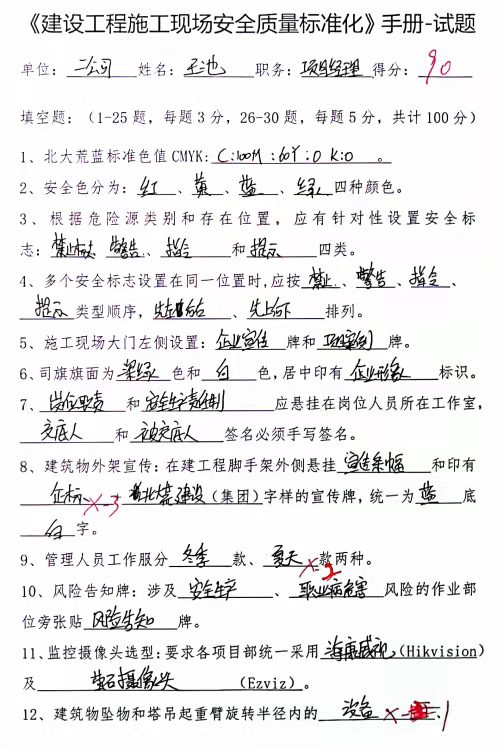 《建设工程施工现场安全质量标准化》手册-试题
单位：二公司 姓名：王池 职务：项目经理 得分：90
填空题：（1-25 题，每题 3 分，26-30 题，每题 5 分，共计 100 分）
1、北大荒蓝标准色值 CMYK：C:100M:60Y:0 K:0。
2、安全色分为：红、黄、蓝、绿四种颜色。
3、根据危险源类别和存在位置，应有针对性设置安全标
志：禁止标志 警告、指令 和提示 四类。
4、多个安全标志设置在同一位置时，应按禁止、警告、指令、
提示类型顺序，先左后右、先上后下排列。
5、施工现场大门左侧设置：企业宣传牌和项目案例牌。
6、司旗旗面为深绿色和白色，居中印有企业形象标识。
7、岗位职责和安全生产责任制应悬挂在岗位人员所在工作室，
交底人和被交底人签名必须手写签名。
8、建筑物外架宣传：在建工程脚手架外侧悬挂宣传条幅和印有
企标 ×-3 北大荒建设（集团）字样的宣传牌，统一为蓝底
白字。
9、管理人员工作服分冬季款、夏天款两种。
×-2
10、风险告知牌：涉及安全生产、职业病危害风险的作业部
位旁张贴风险告知牌。
11、监控摄像头选型：要求各项目部统一采用海康威视（Hikvision）
及萤石摄像头（Ezviz）。
12、建筑物坠物和塔吊起重臂旋转半径内的设备 ×-1